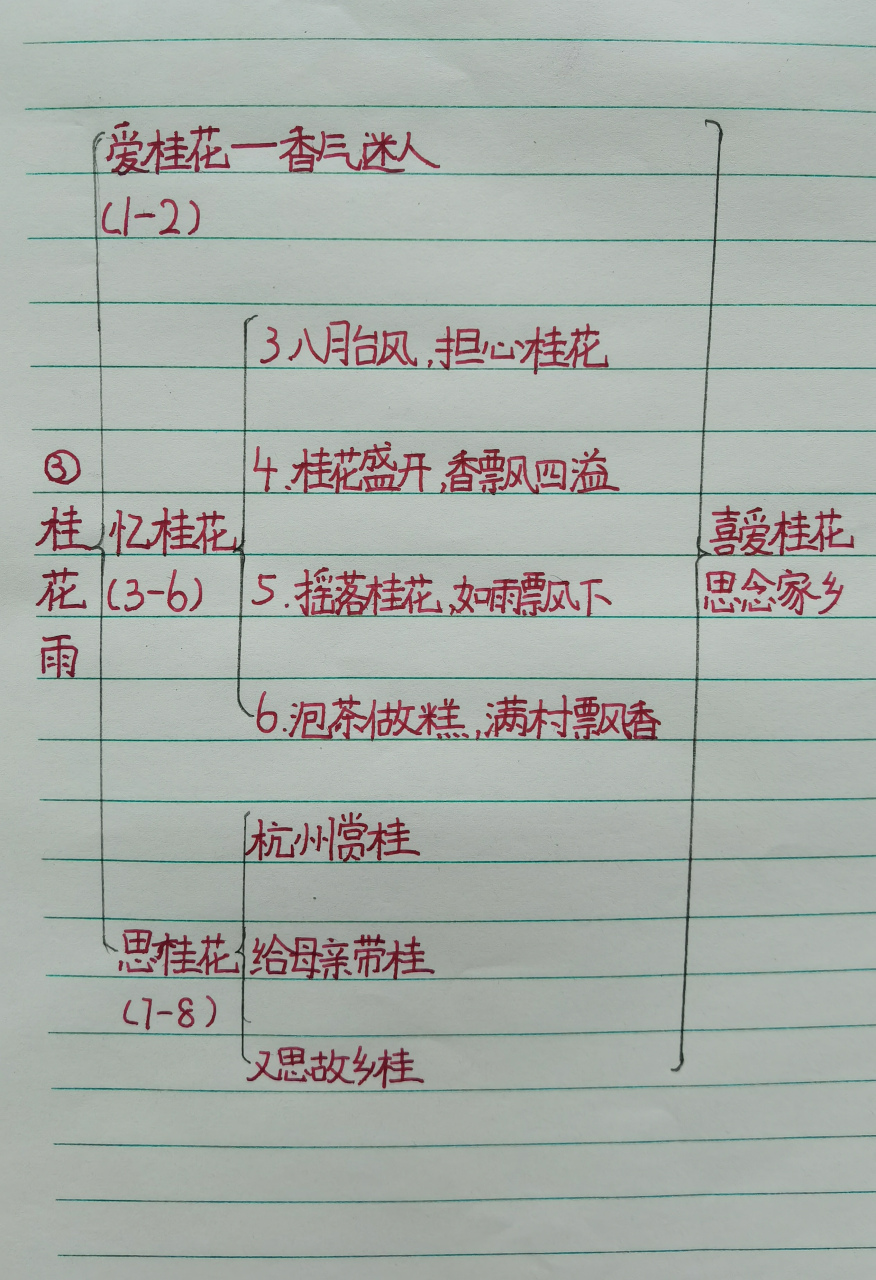 爱桂花一香气迷人
(1-2)
3八月台风,担心桂花
4.桂花盛开,香飘四溢
③
桂花雨
忆桂花
(3-6)
5.摇落桂花,如雨飘下
6.泡茶做糕,满村飘香
喜爱桂花
思念家乡
杭州赏桂
思桂花
(7-8)
给母亲带桂
又思故乡桂